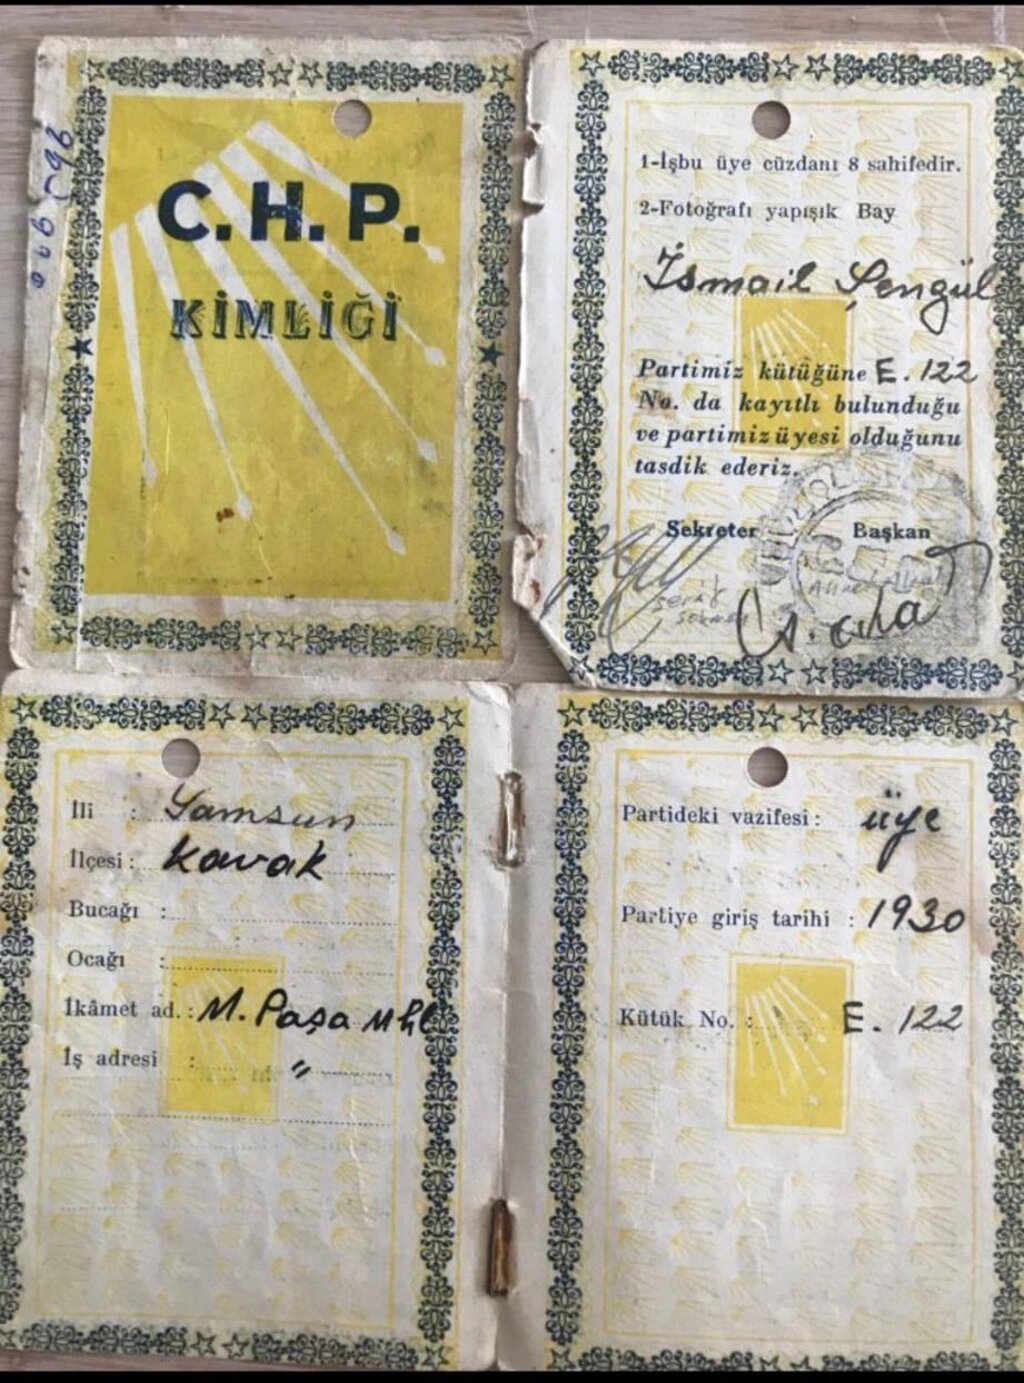 C.H.P.
KİMLİĞİ
1-İşbu üye cüzdanı 8 sahifedir.
2-Fotoğrafı yapışık Bay
İsmail Şengül
Partimiz kütüğüne E. 122
No. da kayıtlı bulunduğu
ve partimiz üyesi olduğunu
tasdik ederiz.
Sekreter Başkan
İli : Samsun
İlçesi : Kavak
Bucağı :
Ocağı :
İkâmet ad. : M. Paşa Mhl
İş adresi : "
Partideki vazifesi : üye
Partiye giriş tarihi : 1930
Kütük No. : E. 122